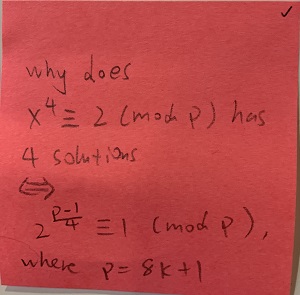 why does
x⁴ ≡ 2 (mod p) has
4 solutions
⇔
2^{\frac{p-1}{4}} ≡ 1 (mod p),
where p = 8k+1